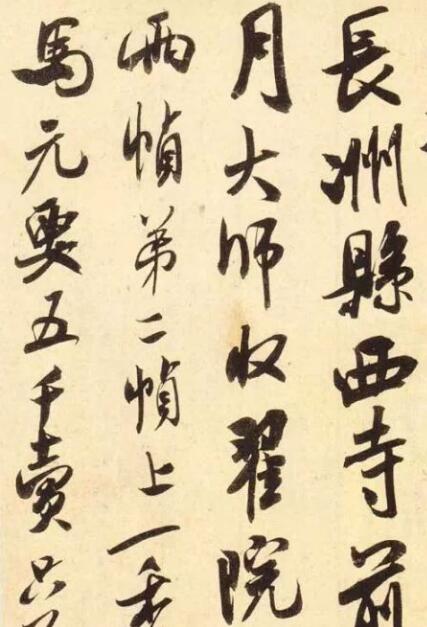 長洲縣西寺前
月大師收翟院
兩幀第二幀上一禿
馬元要五千賣只